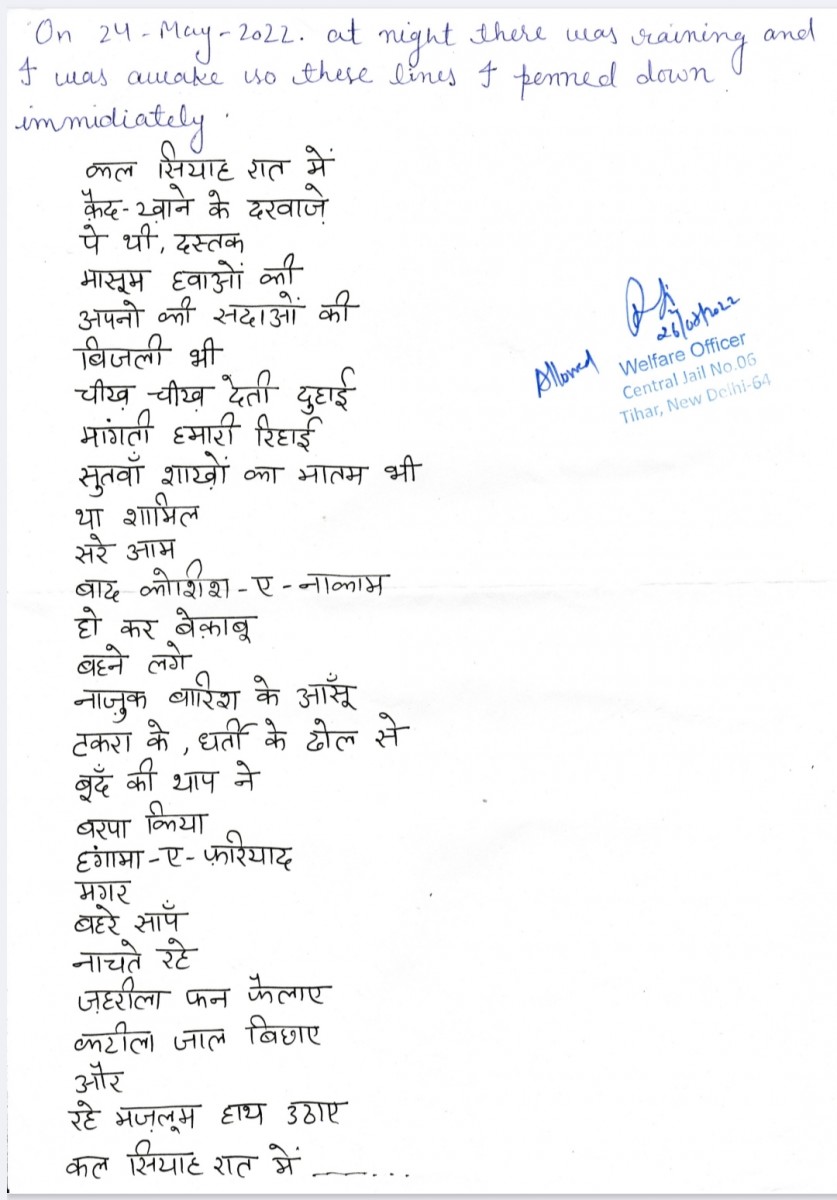 On 24-May-2022. at night there was raining and
I was awake so these lines I penned down
immidiately.
कल सियाह रात में
क़ैद-ख़ाने के दरवाज़े
पे थी, दस्तक
मासूम हवाओं की
अपनो की सदाओं की
बिजली भी
चीख़ चीख़ देती दुहाई
मांगती हमारी रिहाई
सुतवाँ शाख़ों का मातम भी
था शामिल
सरे आम
बाद कोशिश-ए-नाकाम
हो कर बेक़ाबू
बहने लगे
नाज़ुक बारिश के आँसू
टकरा के, धर्ती के ढोल से
बूँद की थाप ने
बरपा किया
हंगामा-ए-फ़रियाद
मगर
बहरे साँप
नाचते रहे
ज़हरीला फन फैलाए
कटीला जाल बिछाए
और
रहे मज़लूम हाथ उठाए
कल सियाह रात में ___...
26/05/2022
Allowed
Welfare Officer
Central Jail No.06
Tihar, New Delhi-64